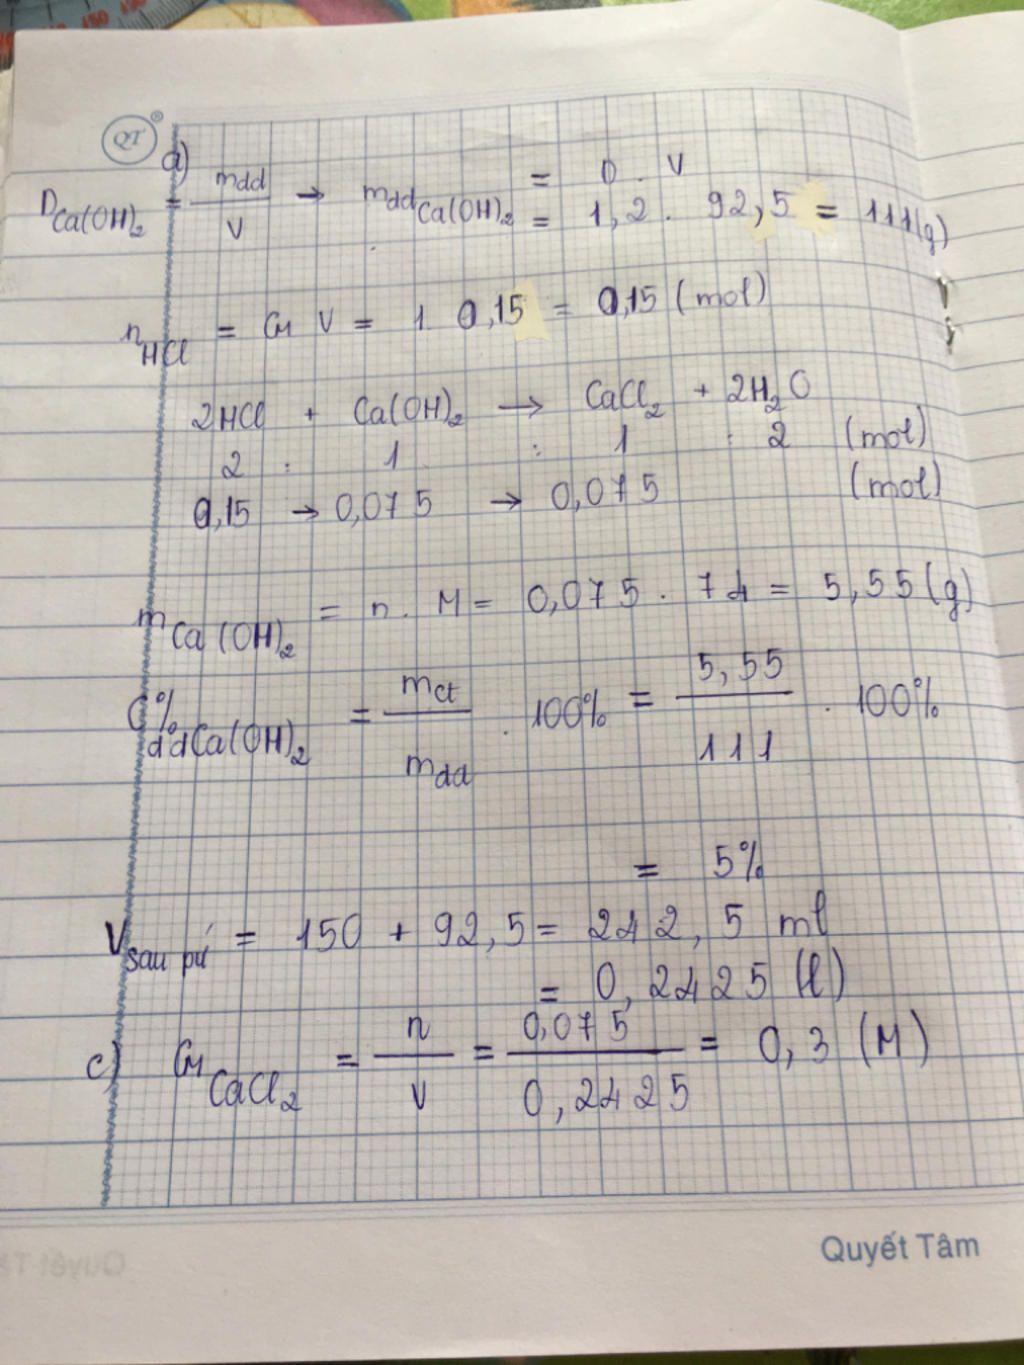 QT ®
a)
D Ca(OH)₂ = mdd / V → mdd Ca(OH)₂ = D . V
= 1,2 . 92,5 = 111(g)
nHCl = CM V = 1 0,15 = 0,15 (mol)
2HCl + Ca(OH)₂ → CaCl₂ + 2H₂O
2 : 1 : 1 : 2 (mol)
0,15 → 0,075 → 0,075 (mol)
mCa(OH)₂ = n . M = 0,075 . 74 = 5,55(g)
C% ddCa(OH)₂ = mct / mdd . 100% = 5,55 / 111 . 100%
= 5%
V sau pứ = 150 + 92,5 = 242,5 ml
= 0,2425 (l)
c) CM CaCl₂ = n / V = 0,075 / 0,2425 = 0,3 (M)
Quyết Tâm